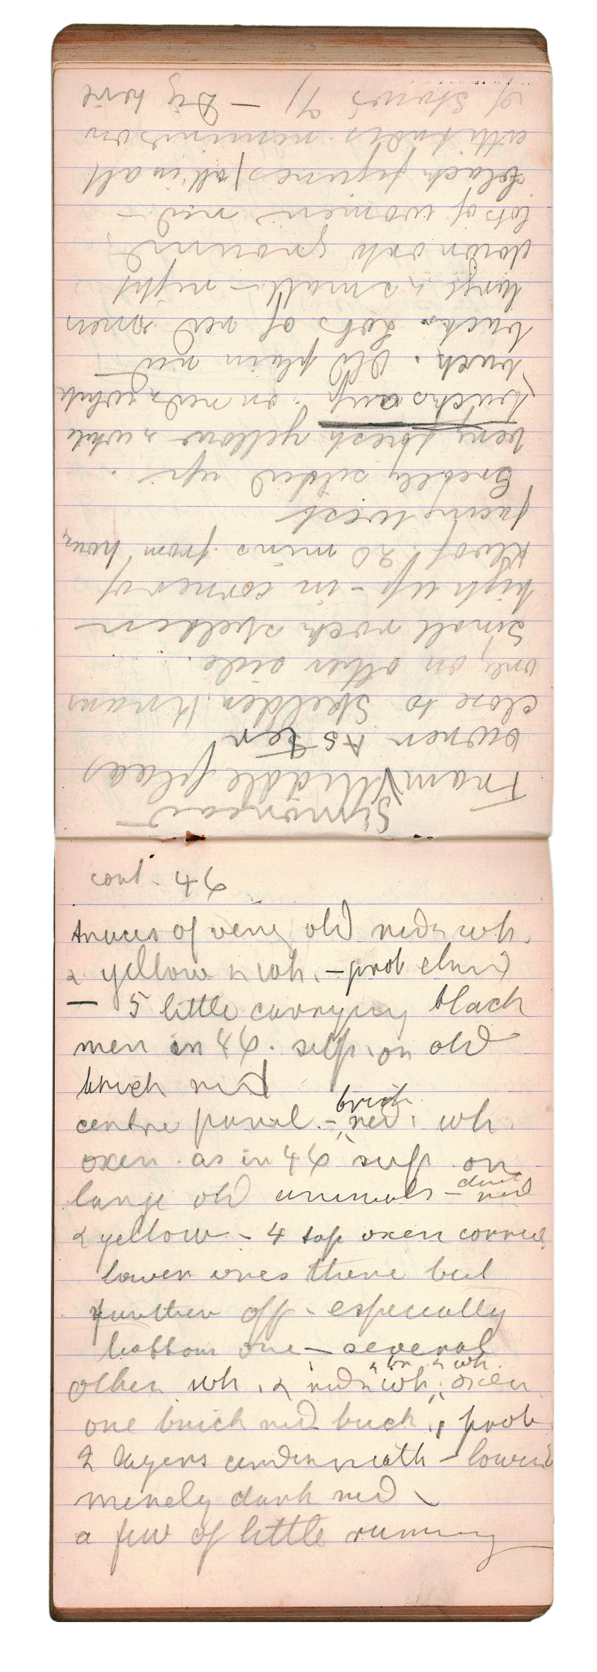 cont. 46
traces of very old red & wh.
& yellow & wh. - prob eland
- 5 little carrying black
men in 46. sup. on old
brick red
centre panel. - brick red & wh.
oxen. as in 46 sup on
large old animals - dark red
& yellow - 4 top oxen correct
lower ones there but
further off - especially
bottom one - several
other wh. & red & wh. & br. & wh. oxen
one brick red buck, prob
2 layers underneath - lower
merely dark red -
a few of little running
Simoneau
From Middelplaas
owner
close to Skelder Kraans
only on other side.
Small rock shelter
high up - in corner of
Kloof 20 mins from house
facing West
Greatly silted up.
very fresh yellow & white
bucks on red & white
buck. Old plain red
bucks. Lots of red men
large & small - right
down onto ground.
lots of women red -
black figures, all in all
attitudes reminiscent
of Stows 71 - Dig here